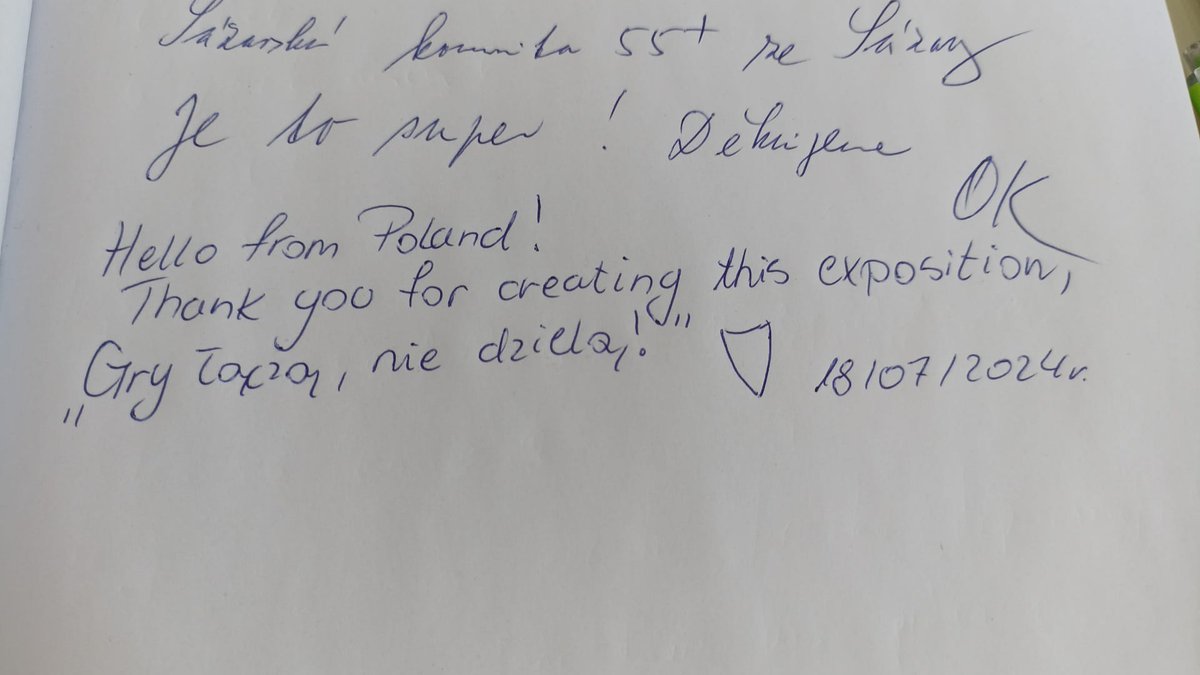 Sázavská komunita 55+ ze Sázavy
Je to super! Děkujeme
OK
Hello from Poland!
Thank you for creating this exposition,
„Gry łączą, nie dzielą!”
18/07/2024r.